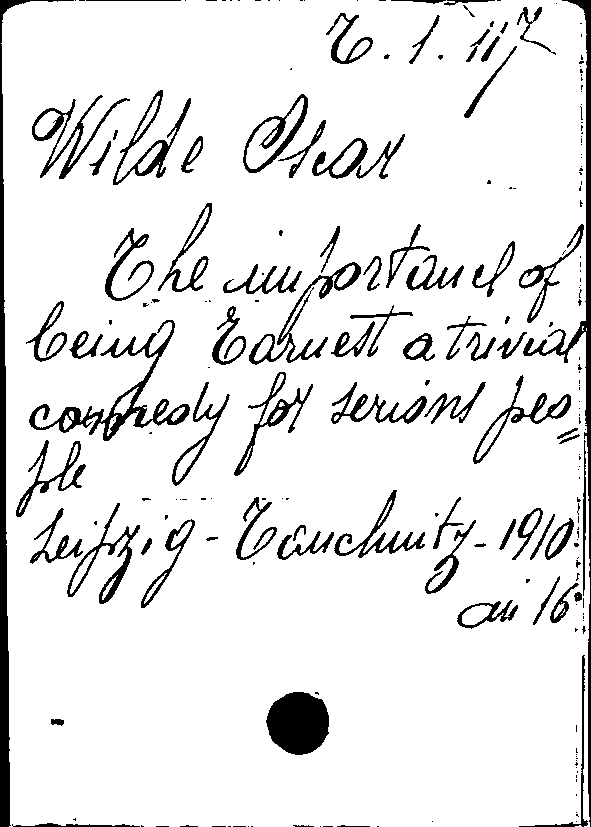 T. 1. 117
Wilde Oscar
The importance of
being Earnest a trivial
comedy for serions peo=
ple
Leipzig - Tauchnitz - 1910.
in 16°